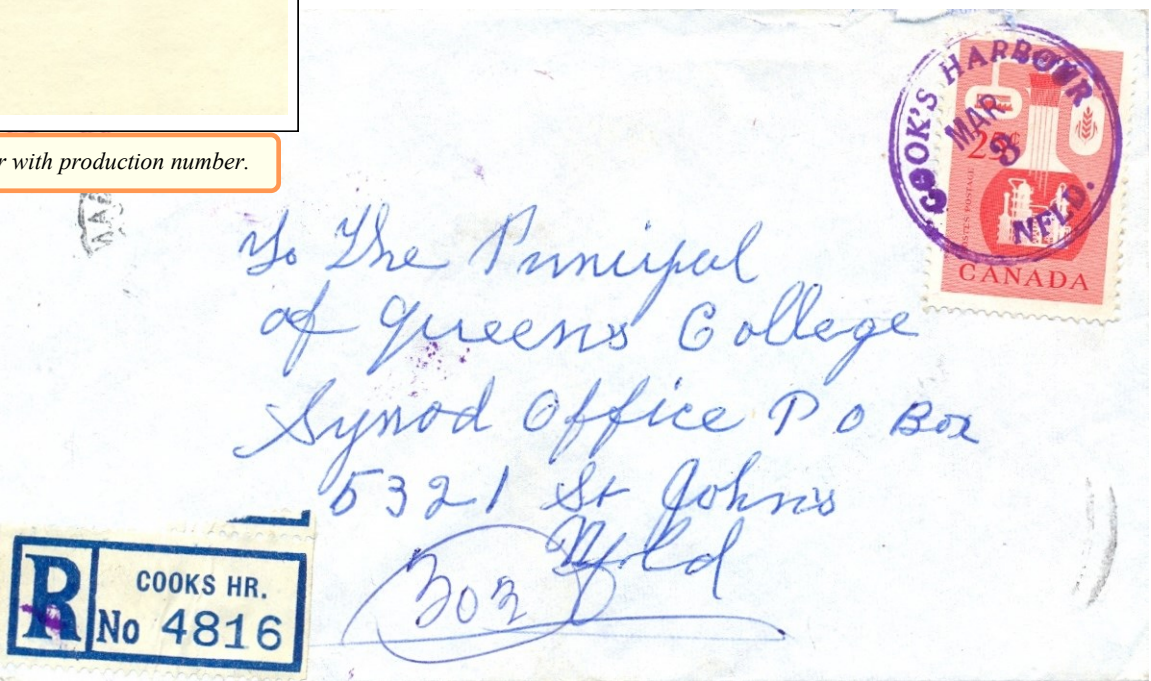 r with production number.
COOK'S HARBOUR
MAR
3
NFLD.
25¢
CANADA
To The Principal
of Queens College
Synod Office P O Box
5321 St Johns
Nfld
302
R
COOKS HR.
No 4816